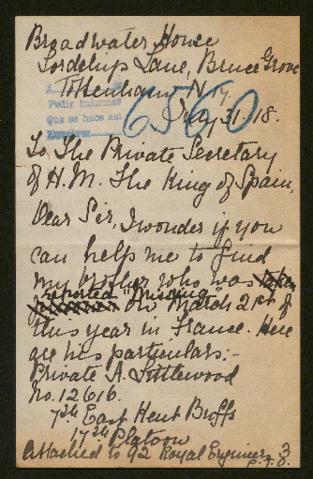 Broadwater House
Lordship Lane, Bruce Grove
Tottenham N. 17.
May 31-18.
Pedir informes
Que se hace así
6560
To The Private Secretary
of H. M. The King of Spain,
Dear Sir, I wonder if you
can help me to find
my brother who was
reported "missing" on March 21st of
this year in France. Here
are his particulars:-
Private A. Littlewood
No. 12616.
7th East Kent Buffs
17th Platoon
Attached to 92 Royal Engineers
P.T.O.